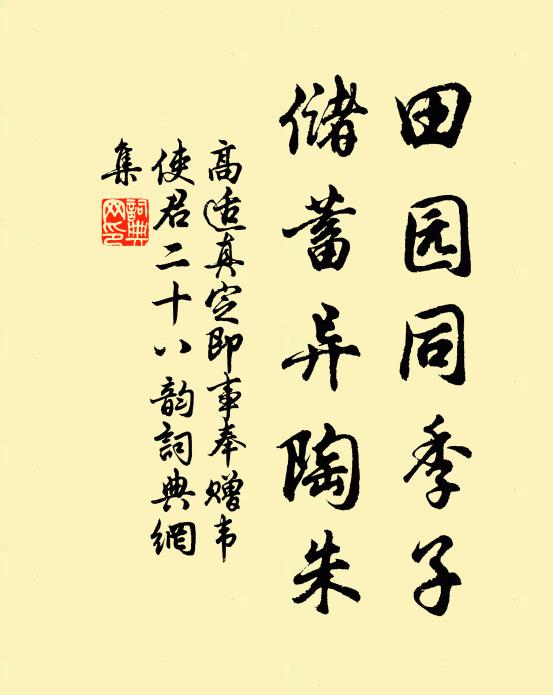 田园同季子
储蓄异陶朱
高适真定即事奉赠韦
使君二十八韵詞典網
集
詞典
网印